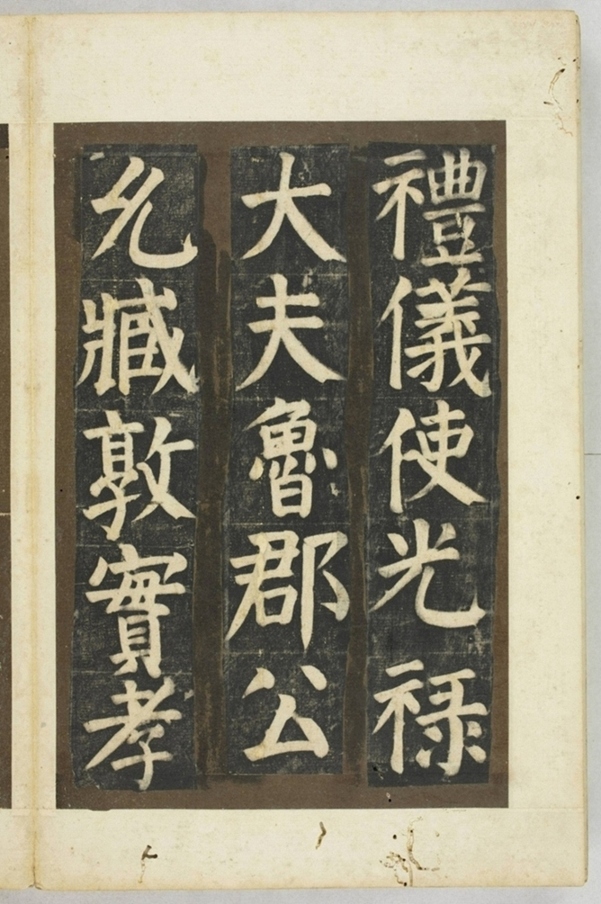 禮儀使光禄
大夫魯郡公
允臧敦實孝